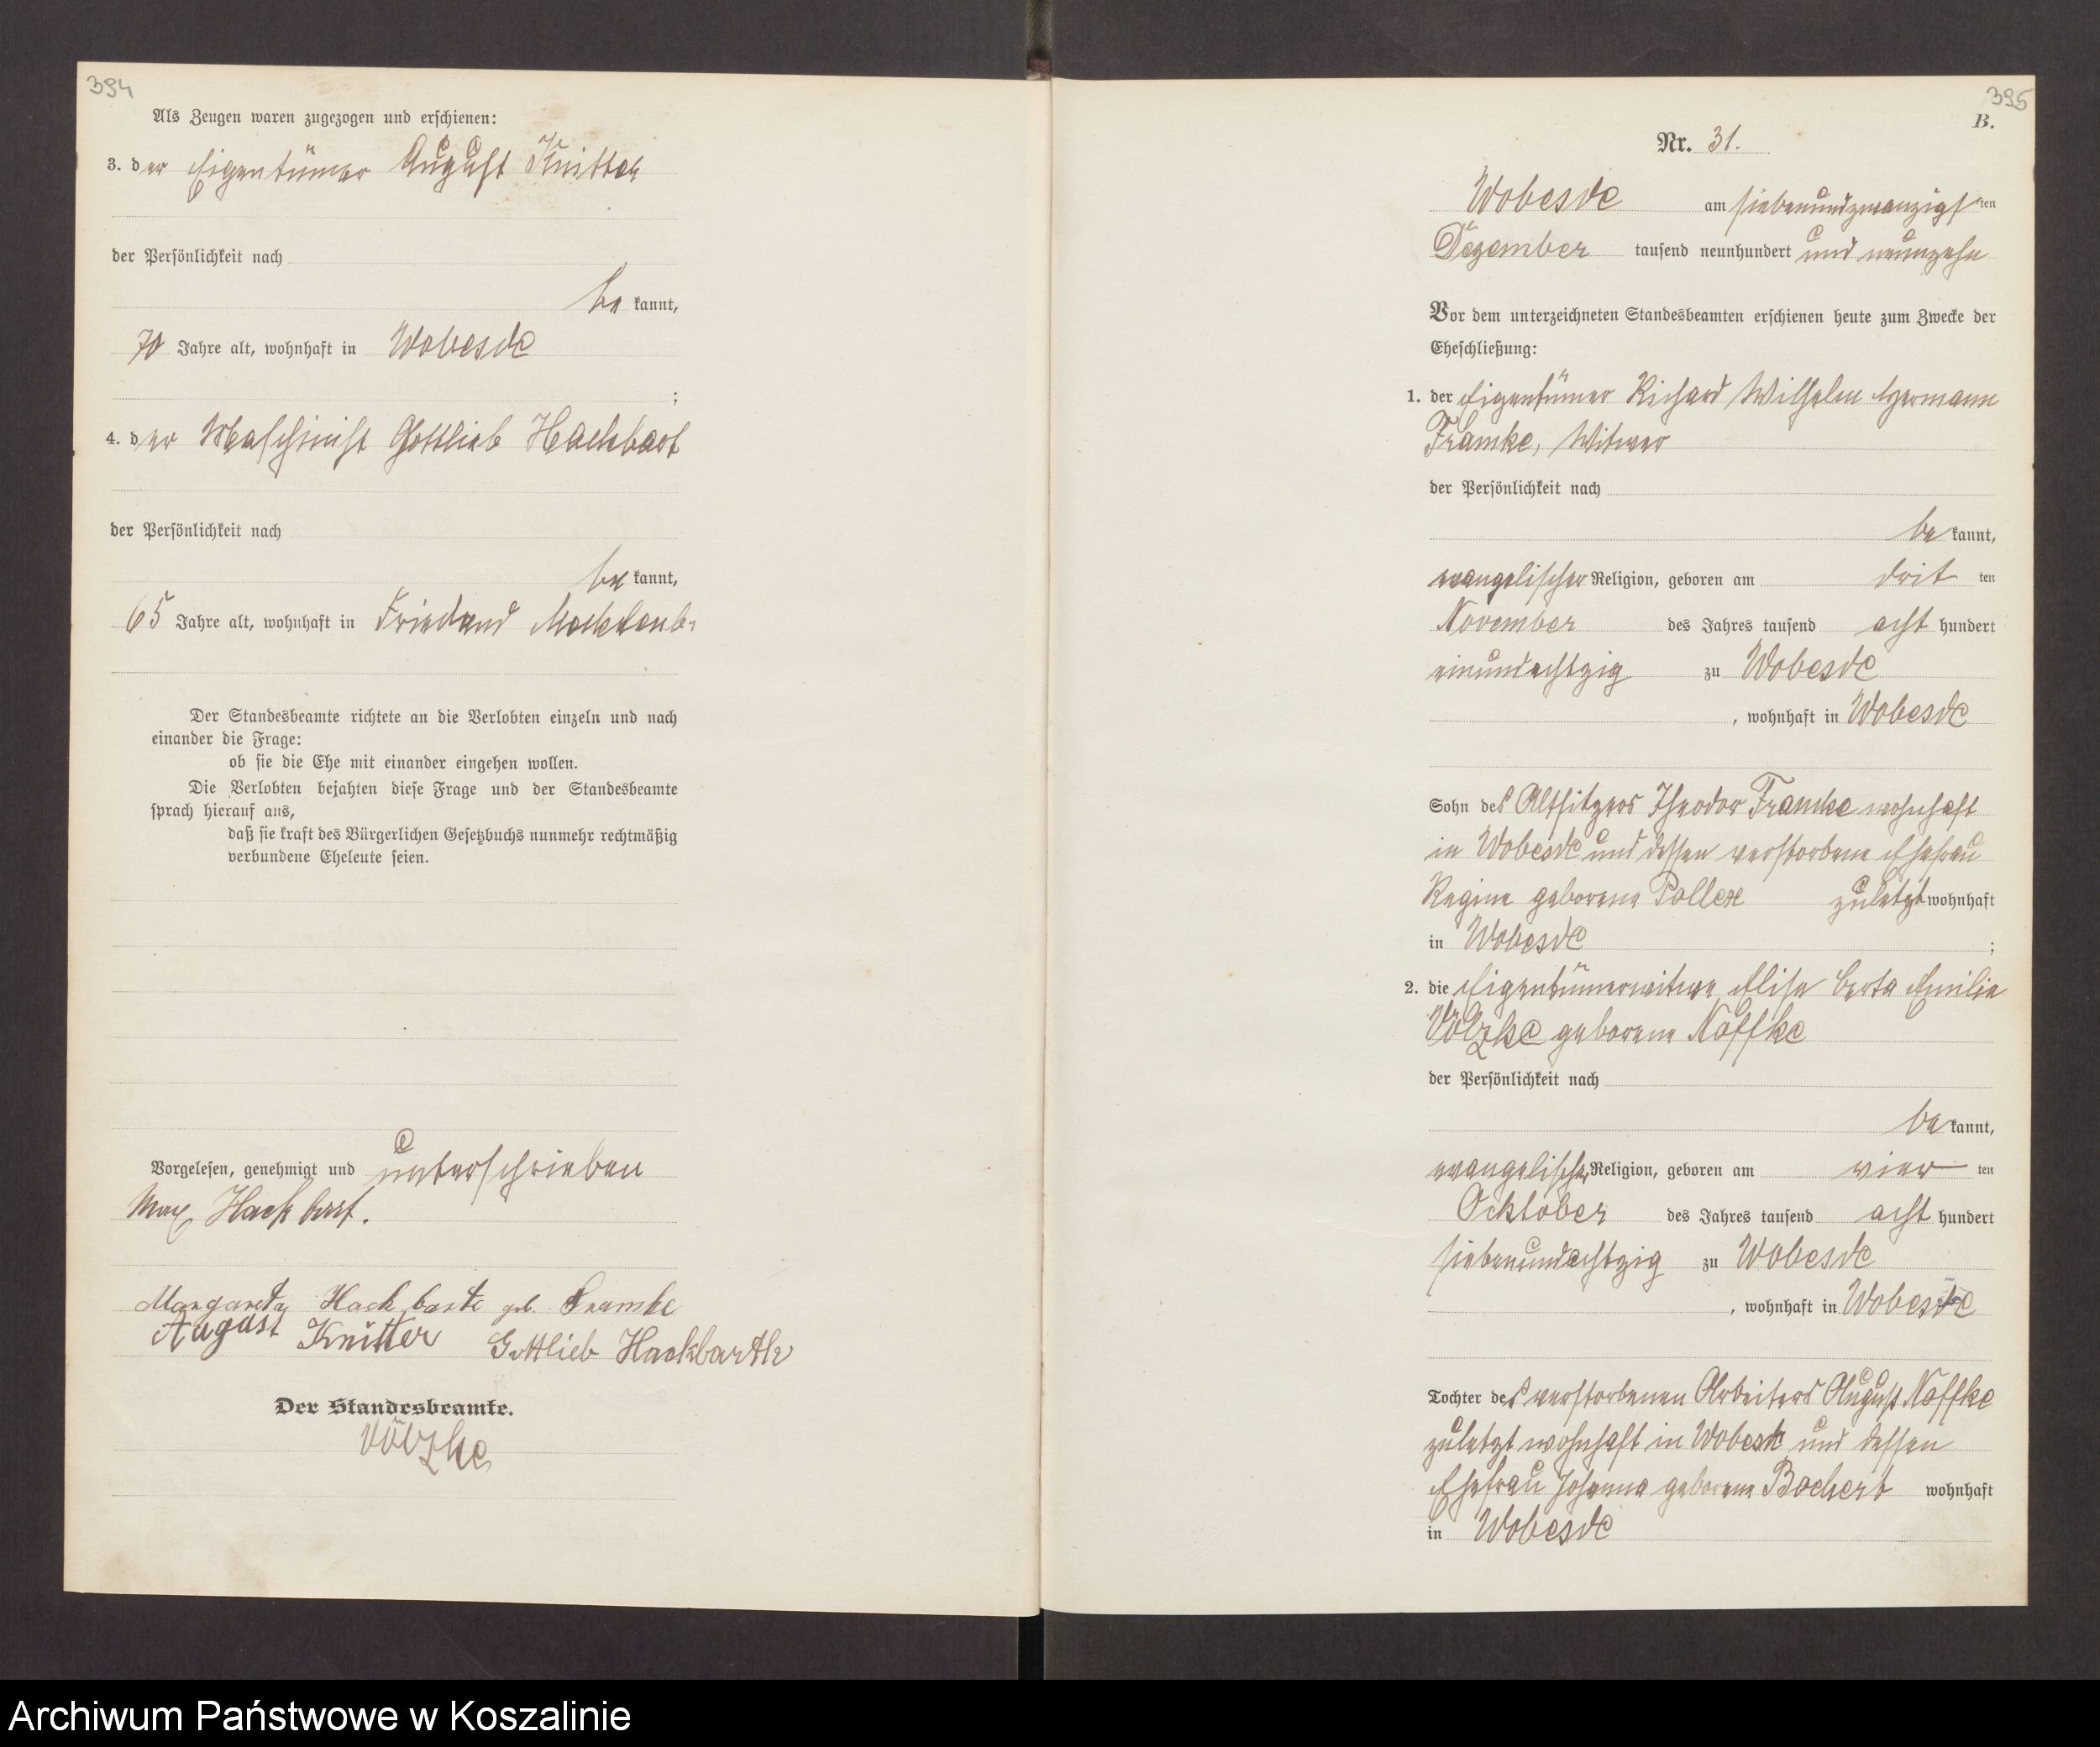 394
Als Zeugen waren zugezogen und erschienen:
3. der Eigentümer August Knitter
der Persönlichkeit nach
be kannt,
70 Jahre alt, wohnhaft in Wobesde
;
4. der Maschinist Gottlieb Hackbart
der Persönlichkeit nach
be kannt,
65 Jahre alt, wohnhaft in Friedland
Der Standesbeamte richtete an die Verlobten einzeln und nach
einander die Frage:
ob sie die Ehe mit einander eingehen wollen.
Die Verlobten bejahten diese Frage und der Standesbeamte
sprach hierauf aus,
daß sie kraft des Bürgerlichen Gesetzbuchs nunmehr rechtmäßig
verbundene Eheleute seien.
Vorgelesen, genehmigt und unterschrieben
Max Hackbart.
Margareta Hackbarte geb. Framke
August Knitter Gottlieb Hackbarth
Der Standesbeamte.
Völzke
395
B.
Nr. 31.
Wobesde am siebenundzwanzigsten
Dezember tausend neunhundert und neunzehn
Vor dem unterzeichneten Standesbeamten erschienen heute zum Zwecke der
Eheschließung:
1. der Eigentümer Richard Wilhelm Hermann
Framke, Witwer
der Persönlichkeit nach
be kannt,
evangelischer Religion, geboren am drit ten
November des Jahres tausend acht hundert
einundachtzig zu Wobesde
, wohnhaft in Wobesde
Sohn des Altsitzers Theodor Framke wohnhaft
in Wobesde und dessen verstorbene Ehefrau
Regine geborene Pollex zuletzt wohnhaft
in Wobesde ;
2. die Eigentümerwitwe Elise Berta Emilie
Völzke geborene Noffke
der Persönlichkeit nach
be kannt,
evangelischer Religion, geboren am vier ten
Ocktober des Jahres tausend acht hundert
siebenundachtzig zu Wobesde
, wohnhaft in Wobesde
Tochter des verstorbenen Arbeiters August Noffke
zuletzt wohnhaft in Wobesde und dessen
Ehefrau Johanna geborene Bochert wohnhaft
in Wobesde
Archiwum Państwowe w Koszalinie